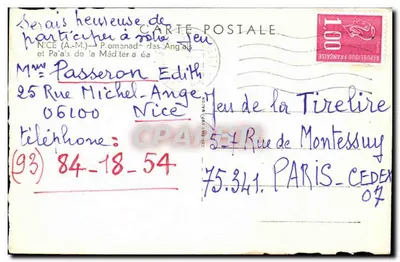 Serais heureuse de
participer à votre Jeu
CARTE POSTALE
NICE (A.-M.) - Promenade des Anglais
et Palais de la Méditerranée
Mme Passeron Edith
25 Rue Michel-Ange
06100 Nice
téléphone:
(93) 84-18-54
1,00
REPUBLIQUE FRANÇAISE
Jeu de la Tirelire
5-7 Rue de Montessuy
75.341. PARIS-CEDEX
07